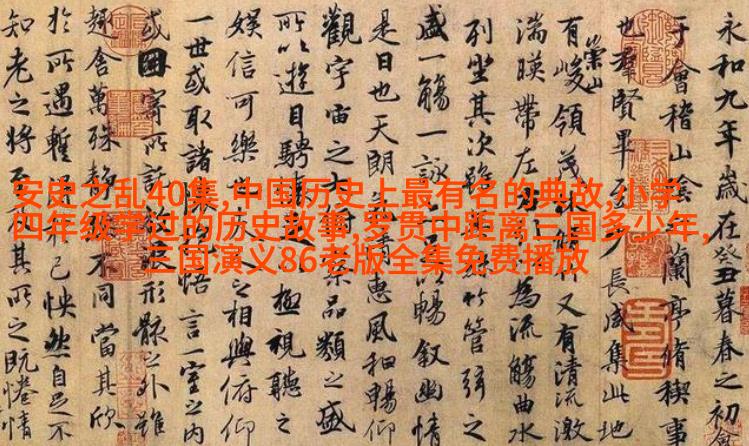 安史之乱40集,中国历史上最有名的典故,小学
四年级学过的历史故事,罗贯中距离三国多少年,
三国演义86老版全集免费播放
永和九年歲在癸丑暮春之初會
于會稽山陰蘭亭脩稧事
也羣賢畢至長咸集此地
有崇山峻領茂林又有清流激
湍暎帶左為流觴曲水
列坐其次雖竹管弦之
盛一觴一詠以暢叙幽情
是日也天朗清惠風和暢仰
觀宇宙之大察品類之盛
所以遊目騁極視聽之
娛信可樂之相與俯仰
一世或取諸悟言一室之內
或因寄所託形骸之外雖
趣舍萬殊靜不同當其欣
於所遇暫己怏然自足不
知老之將至其所之既惓情